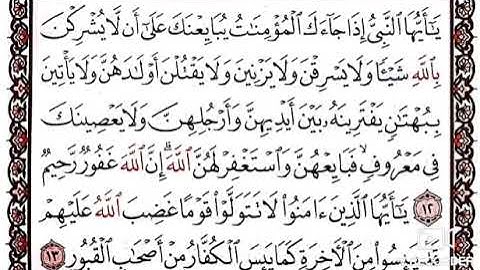 يَٰٓأَيُّهَا ٱلنَّبِىُّ إِذَا جَآءَكَ ٱلْمُؤْمِنَٰتُ يُبَايِعْنَكَ عَلَىٰٓ أَن لَّا يُشْرِكْنَ
بِٱللَّهِ شَيْـًٔا وَلَا يَسْرِقْنَ وَلَا يَزْنِينَ وَلَا يَقْتُلْنَ أَوْلَٰدَهُنَّ وَلَا يَأْتِينَ
بِبُهْتَٰنٍ يَفْتَرِينَهُۥ بَيْنَ أَيْدِيهِنَّ وَأَرْجُلِهِنَّ وَلَا يَعْصِينَكَ
فِى مَعْرُوفٍ ۙ فَبَايِعْهُنَّ وَٱسْتَغْفِرْ لَهُنَّ ٱللَّهَ ۖ إِنَّ ٱللَّهَ غَفُورٌ رَّحِيمٌ
١٢ يَٰٓأَيُّهَا ٱلَّذِينَ ءَامَنُوا۟ لَا تَتَوَلَّوْا۟ قَوْمًا غَضِبَ ٱللَّهُ عَلَيْهِمْ
يَئِسُوا۟ مِنَ ٱلْءَاخِرَةِ كَمَا يَئِسَ ٱلْكُفَّارُ مِنْ أَصْحَٰبِ ٱلْقُبُورِ ١٣